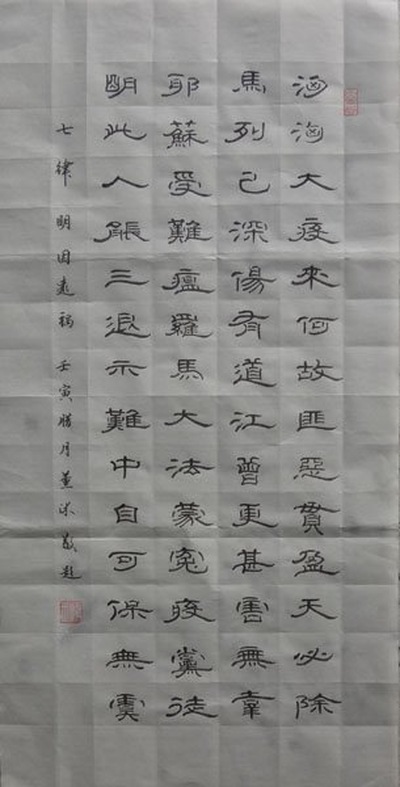 洶洶大疫來何故匪惡貫盈天必除
馬列已深傷有道江曾更甚害無辜
耶蘇受難瘟羅馬大法蒙冤疫黨徒
明此人能三退示難中自可保無虞
七律 明因遠禍 壬寅腊月董沐敬題